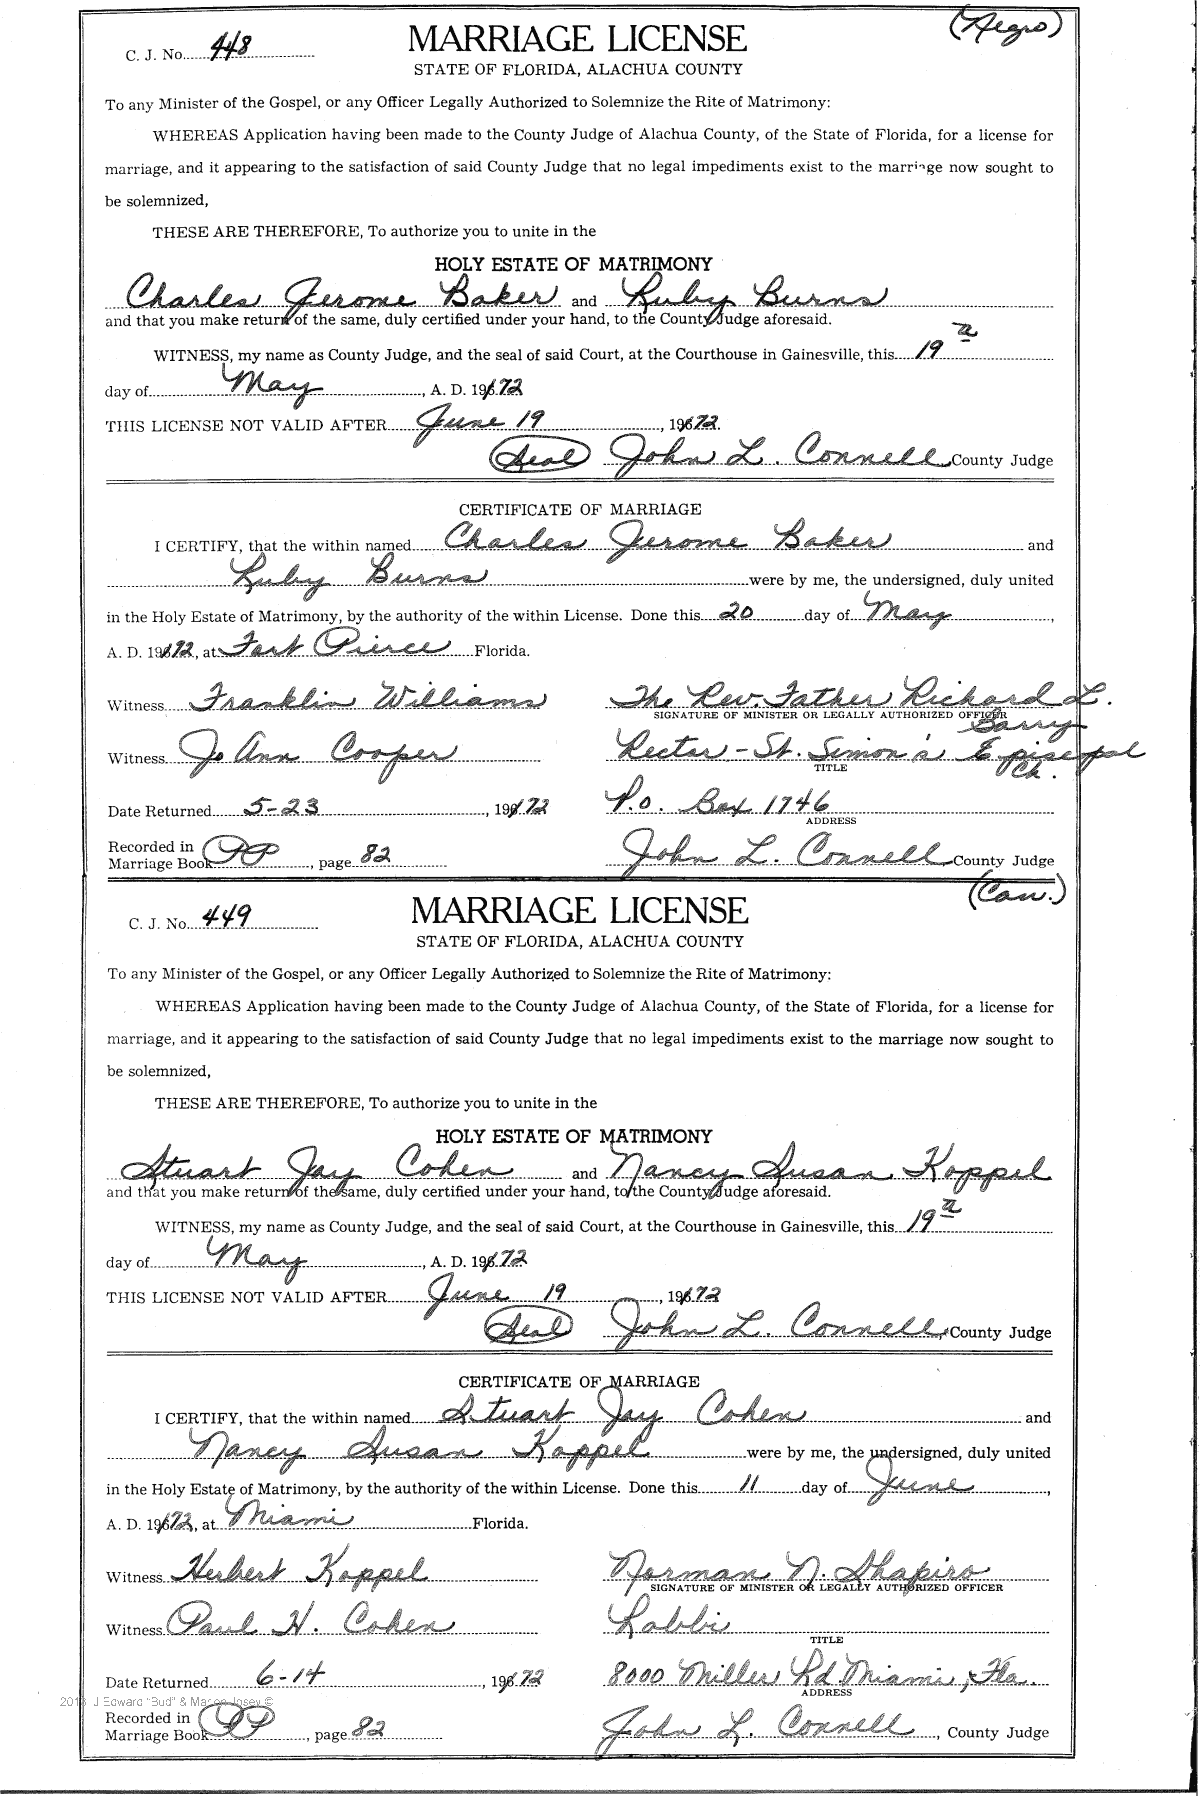 (Negro)
C. J. No. 448
MARRIAGE LICENSE
STATE OF FLORIDA, ALACHUA COUNTY
To any Minister of the Gospel, or any Officer Legally Authorized to Solemnize the Rite of Matrimony:
WHEREAS Application having been made to the County Judge of Alachua County, of the State of Florida, for a license for
marriage, and it appearing to the satisfaction of said County Judge that no legal impediments exist to the marriage now sought to
be solemnized,
THESE ARE THEREFORE, To authorize you to unite in the
HOLY ESTATE OF MATRIMONY
Charles Jerome Baker and Ruby Burns
and that you make return of the same, duly certified under your hand, to the County Judge aforesaid.
WITNESS, my name as County Judge, and the seal of said Court, at the Courthouse in Gainesville, this 19th
day of May, A. D. 19672
THIS LICENSE NOT VALID AFTER June 19, 19672.
(Seal) John L. Connell, County Judge
CERTIFICATE OF MARRIAGE
I CERTIFY, that the within named Charles Jerome Baker and
Ruby Burns were by me, the undersigned, duly united
in the Holy Estate of Matrimony, by the authority of the within License. Done this 20 day of May,
A. D. 19672, at Fort Pierce Florida.
Witness Franklin Williams The Rev. Father Richard L.
SIGNATURE OF MINISTER OR LEGALLY AUTHORIZED OFFICER
Barry
Witness Jo Ann Cooper Rector - St. Simon's Episcopal
TITLE Ch.
Date Returned 5-23, 19672 P.O. Box 1746
ADDRESS
Recorded in
Marriage Book PP, page 82 John L. Connell County Judge
(Cau.)
C. J. No. 449
MARRIAGE LICENSE
STATE OF FLORIDA, ALACHUA COUNTY
To any Minister of the Gospel, or any Officer Legally Authorized to Solemnize the Rite of Matrimony:
WHEREAS Application having been made to the County Judge of Alachua County, of the State of Florida, for a license for
marriage, and it appearing to the satisfaction of said County Judge that no legal impediments exist to the marriage now sought to
be solemnized,
THESE ARE THEREFORE, To authorize you to unite in the
HOLY ESTATE OF MATRIMONY
Stuart Jay Cohen and Nancy Susan Koppel
and that you make return of the same, duly certified under your hand, to the County Judge aforesaid.
WITNESS, my name as County Judge, and the seal of said Court, at the Courthouse in Gainesville, this 19th
day of May, A. D. 19672
THIS LICENSE NOT VALID AFTER June 19, 19672
(Seal) John L. Connell, County Judge
CERTIFICATE OF MARRIAGE
I CERTIFY, that the within named Stuart Jay Cohen and
Nancy Susan Koppel were by me, the undersigned, duly united
in the Holy Estate of Matrimony, by the authority of the within License. Done this 11 day of June,
A. D. 19672, at Miami Florida.
Witness Herbert Koppel Norman N. Shapiro
SIGNATURE OF MINISTER OR LEGALLY AUTHORIZED OFFICER
Witness Paul H. Cohen Rabbi
TITLE
Date Returned 6-14, 19672 8000 Miller Rd Miami, Fla.
ADDRESS
J Edward "Bud" & Marion Josey ©
Recorded in
Marriage Book PP, page 82 John L. Connell, County Judge